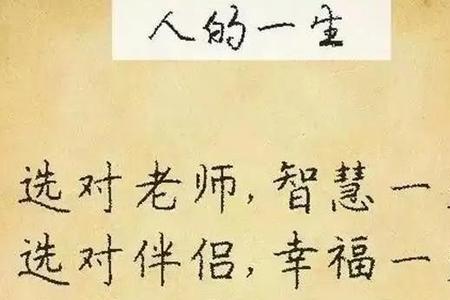 人的一生
选对老师,智慧一
选对伴侣,幸福一